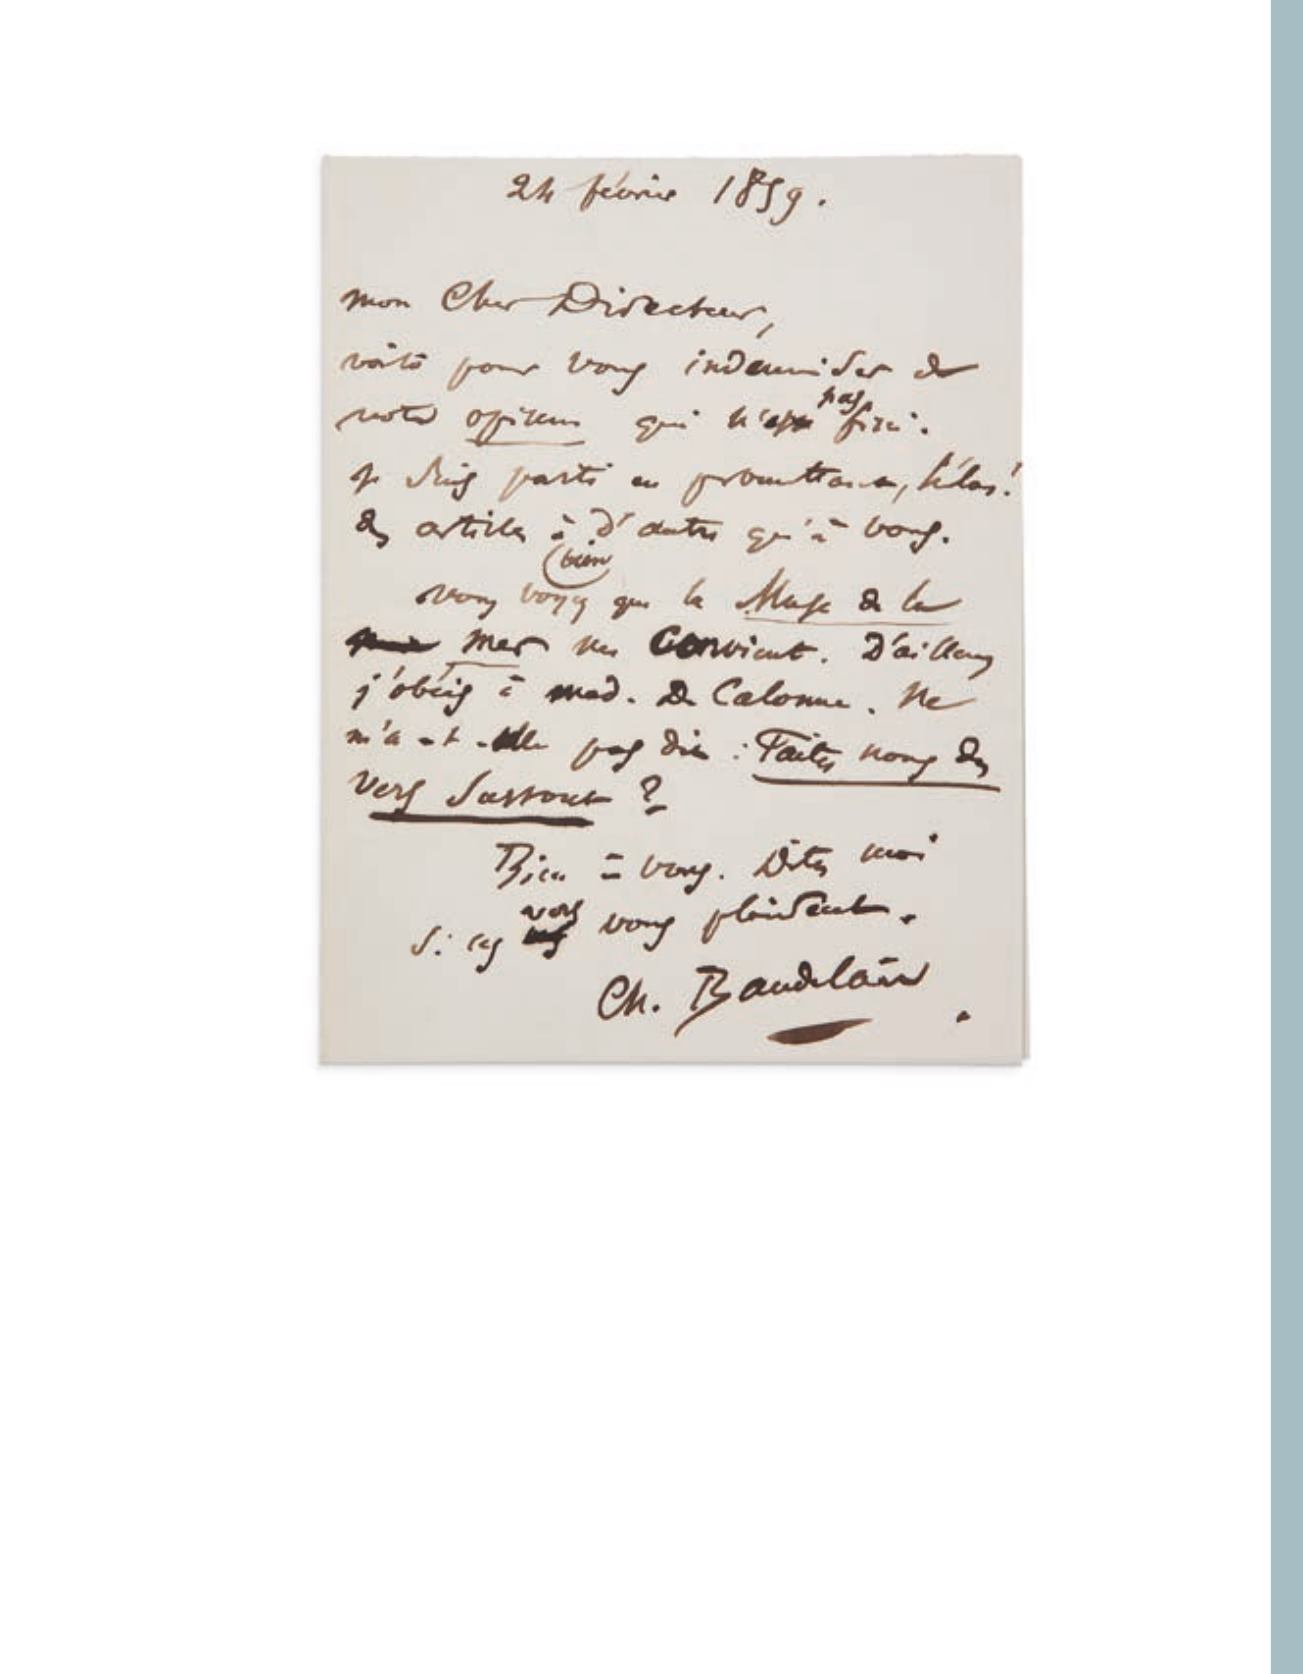 24 février 1859.
mon Cher Directeur,
voilà pour vous indemniser de
notre opium qui n'est pas fini.
je suis parti en promettant, hélas!
des articles à d'autres qu'à vous.
vous voyez bien que la Muse de la
mer me Convient. D'ailleurs
j'obéis à mad. De Calonne. Ne
m'a-t-elle pas dit : Faites nous des
vers surtout ?
Bien à vous. Dites moi
si ces vers vous plaisent.
Ch. Baudelaire